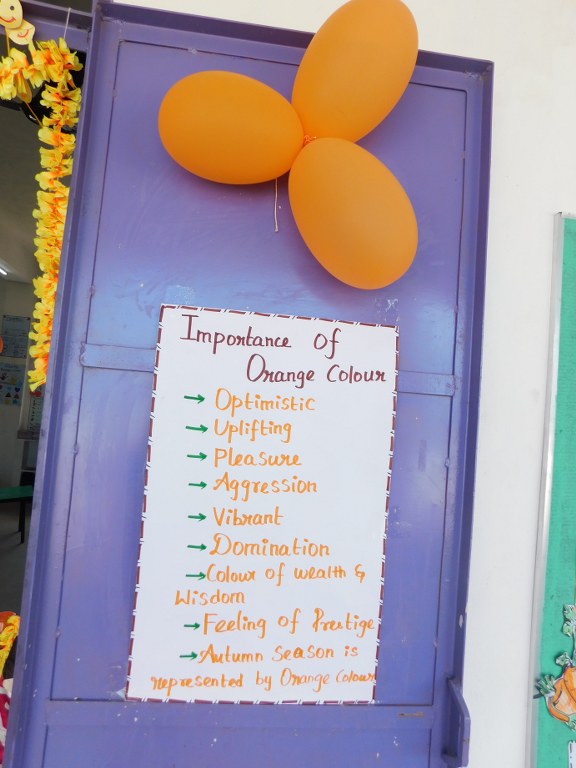 Importance Of
Orange Colour
→ Optimistic
→ Uplifting
→ Pleasure
→ Aggression
→ Vibrant
→ Domination
→ Colour of wealth &
Wisdom
→ Feeling of Prestige
→ Autumn season is
represented by Orange Colour